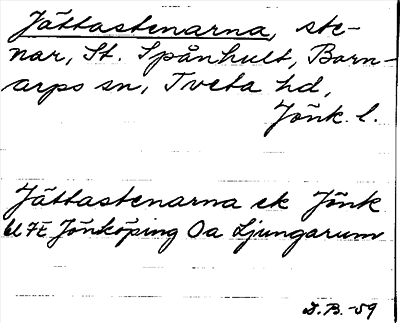 Jättastenarna, ste-
nar, St. Spånhult, Barn-
arps sn, Tveta hd,
Jönk. l.
Jättastenarna ek Jönk
bl 7E Jönköping Oa Ljungarum
D.B. -59